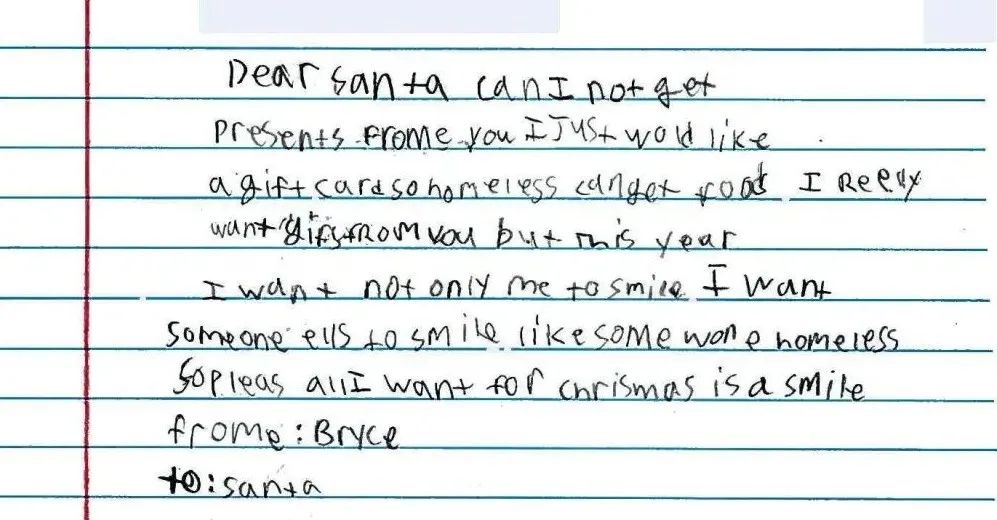 Dear santa can I not get
presents frome you I Just wold like
a gift card so homeless can get food I Reely
want gifts from you but this year
I want not only me to smile I want
someone ells to smile like some wone homeless
so pleas all I want for chrismas is a smile
frome: Bryce
to: santa